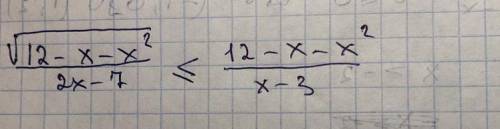 √(12 - x - x²) / (2x - 7) ≤ (12 - x - x²) / (x - 3)